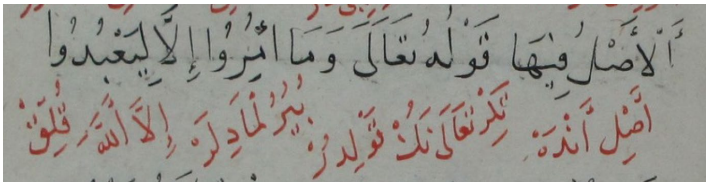 اَلْأَصْلُ فِيهَا قَوْلُهُ تَعَالَى وَمَا أُمِرُوا إِلَّا لِيَعْبُدُوا
أَصْلِ أَنْدَهْ تَكْرِ تَعَالَى نَكْ قَوْلِدُرْ بُيُرُلْمَادِلَرْ إِلَّا اللَّهَ قُلِقْ